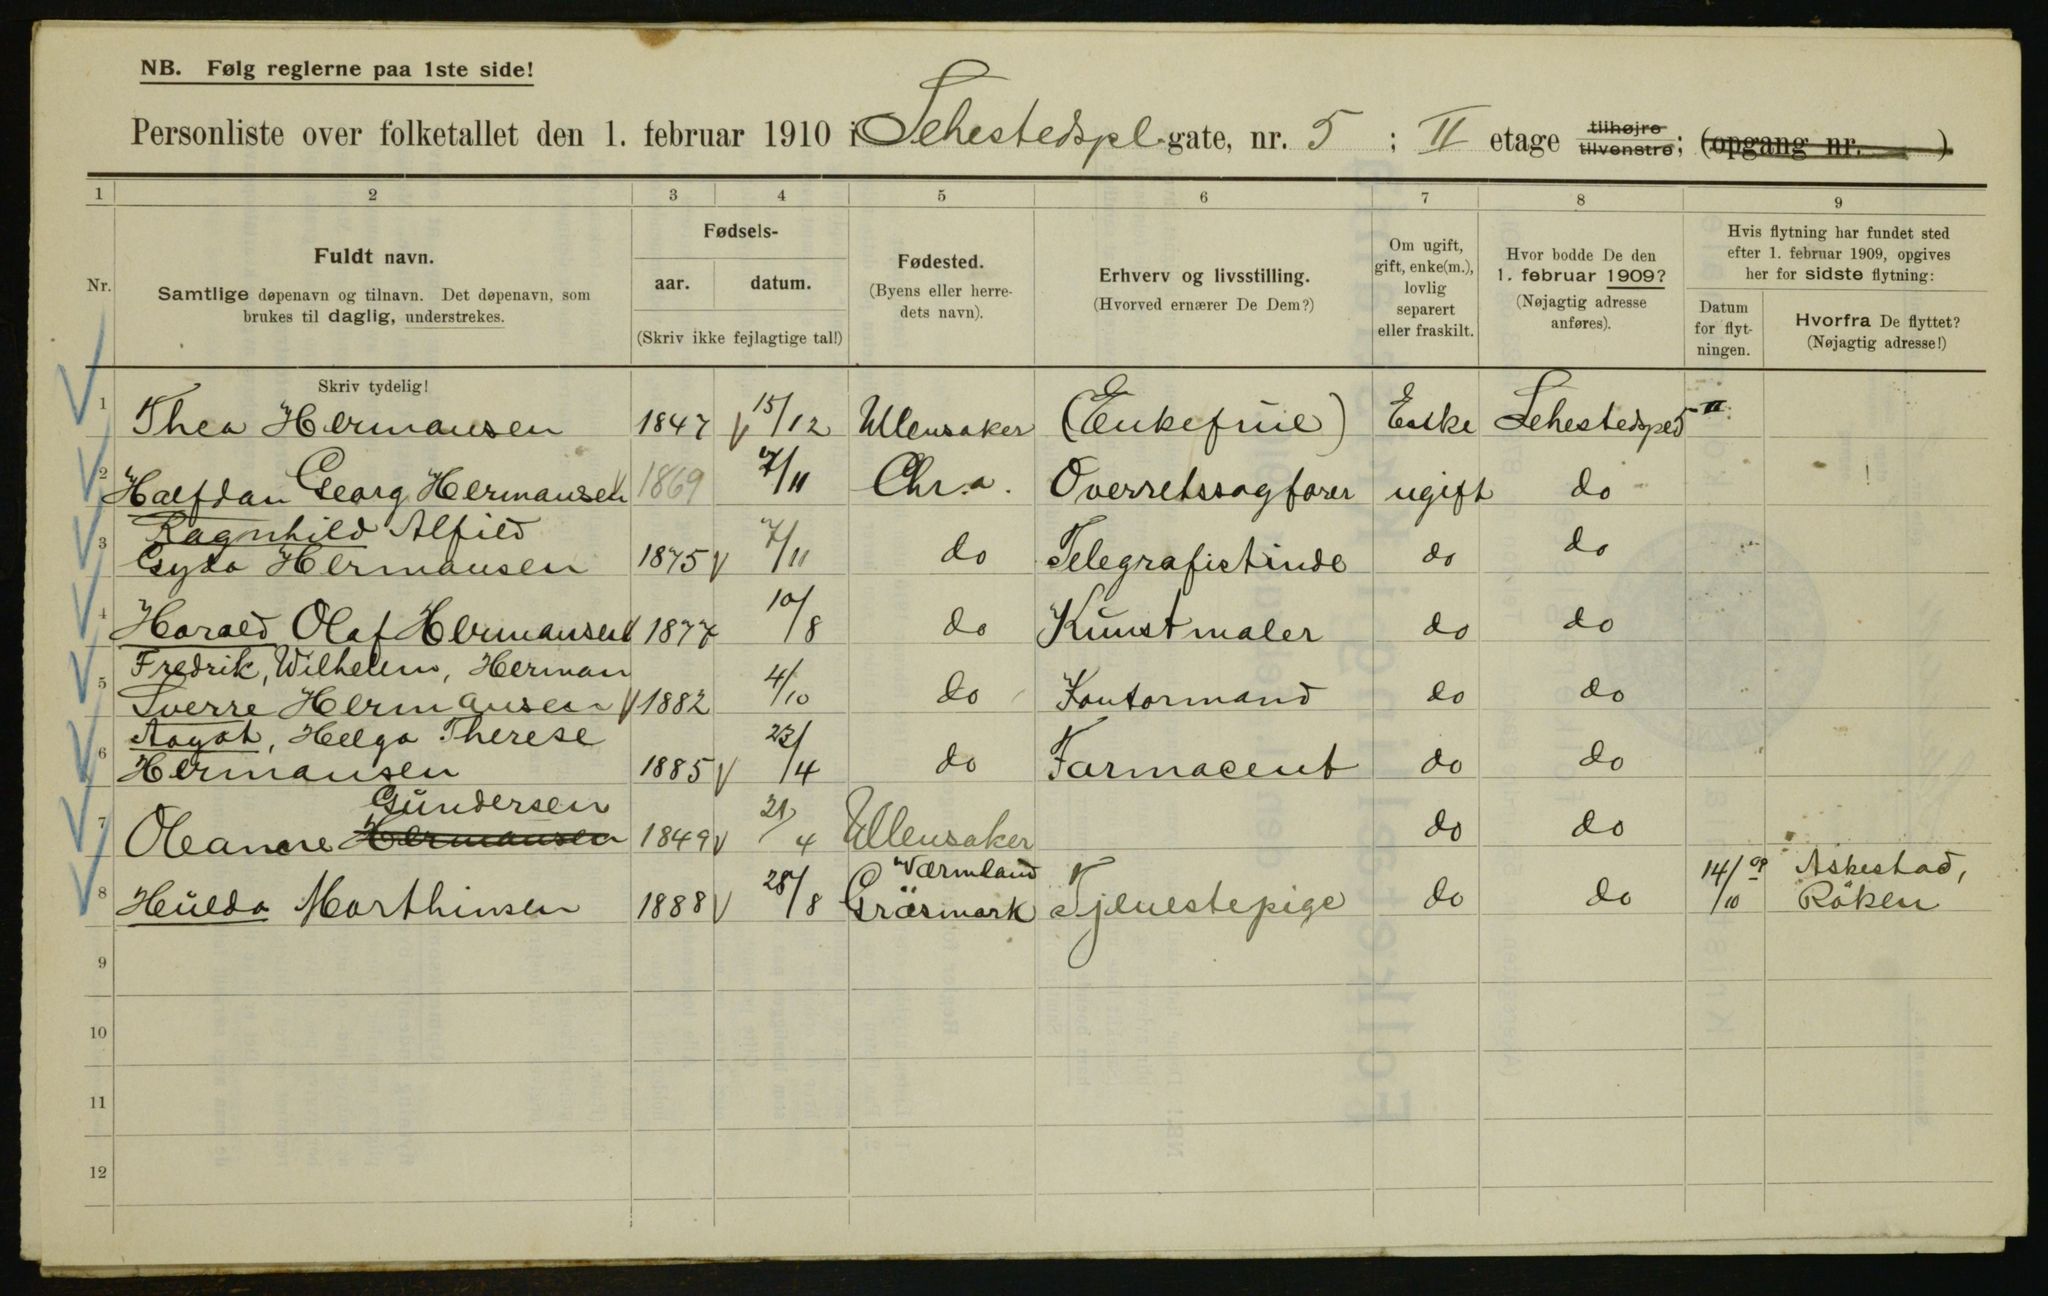 NB. Følg reglerne paa 1ste side!
Personliste over folketallet den 1. februar 1910 i Sehestedspl. gate, nr. 5 ; II etage tilhøjre tilvenstre; (opgang nr. )
1 2 3 4 5 6 7 8 9
Nr.
Fuldt navn.
Samtlige døpenavn og tilnavn. Det døpenavn, som
brukes til daglig, understrekes.
Skriv tydelig!
Fødsels-
aar. datum.
(Skriv ikke fejlagtige tal!)
Fødested.
(Byens eller herre-
dets navn).
Erhverv og livsstilling.
(Hvorved ernærer De Dem?)
Om ugift,
gift, enke(m.),
lovlig
separert
eller fraskilt.
Hvor bodde De den
1. februar 1909?
(Nøjagtig adresse
anføres).
Hvis flytning har fundet sted
efter 1. februar 1909, opgives
her for sidste flytning:
Datum
for flyt-
ningen.
Hvorfra De flyttet?
(Nøjagtig adresse!)
1 Thea Hermansen 1847 15/12 Ullensaker (Enkefrue) Enke Sehestedspl 5 II
2 Halfdan Georg Hermansen 1869 7/11 Chr.a. Overretssagfører ugift do
3 Ragnhild Alfild
Gyda Hermansen 1875 7/11 do Telegrafistinde do do
4 Harald Olaf Hermansen 1877 10/8 do Kunstmaler do do
5 Fredrik, Wilhelm, Herman
Sverre Hermansen 1882 4/10 do Kontormand do do
6 Aagot, Helga Therese
Hermansen 1885 23/4 do Farmaceut do do
Gundersen
7 Oleanne Hermansen 1849 21/4 Ullensaker do do
Værmland
8 Hulda Marthinsen 1888 28/8 Gräsmark Tjenestepige do do 14/10 09 Askestad,
Röken
9
10
11
12